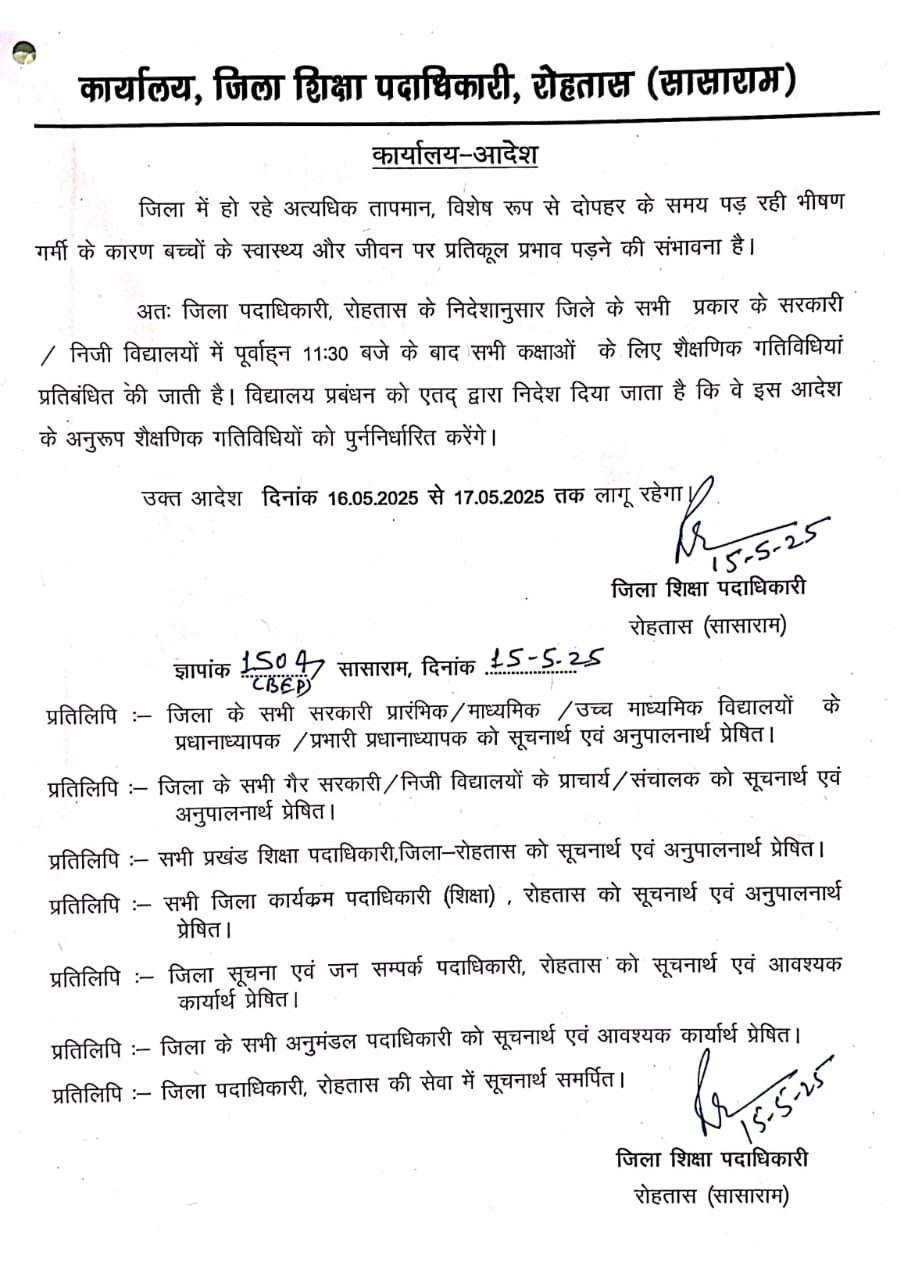 कार्यालय, जिला शिक्षा पदाधिकारी, रोहतास (सासाराम)
कार्यालय-आदेश
जिला में हो रहे अत्यधिक तापमान, विशेष रूप से दोपहर के समय पड़ रही भीषण
गर्मी के कारण बच्चों के स्वास्थ्य और जीवन पर प्रतिकूल प्रभाव पड़ने की संभावना है।
अतः जिला पदाधिकारी, रोहतास के निदेशानुसार जिले के सभी प्रकार के सरकारी
/ निजी विद्यालयों में पूर्वाह्न 11:30 बजे के बाद सभी कक्षाओं के लिए शैक्षणिक गतिविधियां
प्रतिबंधित की जाती है। विद्यालय प्रबंधन को एतद् द्वारा निदेश दिया जाता है कि वे इस आदेश
के अनुरूप शैक्षणिक गतिविधियों को पुर्ननिर्धारित करेंगे।
उक्त आदेश दिनांक 16.05.2025 से 17.05.2025 तक लागू रहेगा।
15-5-25
जिला शिक्षा पदाधिकारी
रोहतास (सासाराम)
ज्ञापांक 1504 सासाराम, दिनांक 15-5-25
(BEP)
प्रतिलिपि :– जिला के सभी सरकारी प्रारंभिक/माध्यमिक /उच्च माध्यमिक विद्यालयों के
प्रधानाध्यापक /प्रभारी प्रधानाध्यापक को सूचनार्थ एवं अनुपालनार्थ प्रेषित।
प्रतिलिपि :– जिला के सभी गैर सरकारी/निजी विद्यालयों के प्राचार्य/संचालक को सूचनार्थ एवं
अनुपालनार्थ प्रेषित।
प्रतिलिपि :– सभी प्रखंड शिक्षा पदाधिकारी,जिला–रोहतास को सूचनार्थ एवं अनुपालनार्थ प्रेषित।
प्रतिलिपि :– सभी जिला कार्यक्रम पदाधिकारी (शिक्षा) , रोहतास को सूचनार्थ एवं अनुपालनार्थ
प्रेषित।
प्रतिलिपि :– जिला सूचना एवं जन सम्पर्क पदाधिकारी, रोहतास को सूचनार्थ एवं आवश्यक
कार्यार्थ प्रेषित।
प्रतिलिपि :– जिला के सभी अनुमंडल पदाधिकारी को सूचनार्थ एवं आवश्यक कार्यार्थ प्रेषित।
प्रतिलिपि :– जिला पदाधिकारी, रोहतास की सेवा में सूचनार्थ समर्पित।
15-5-25
जिला शिक्षा पदाधिकारी
रोहतास (सासाराम)